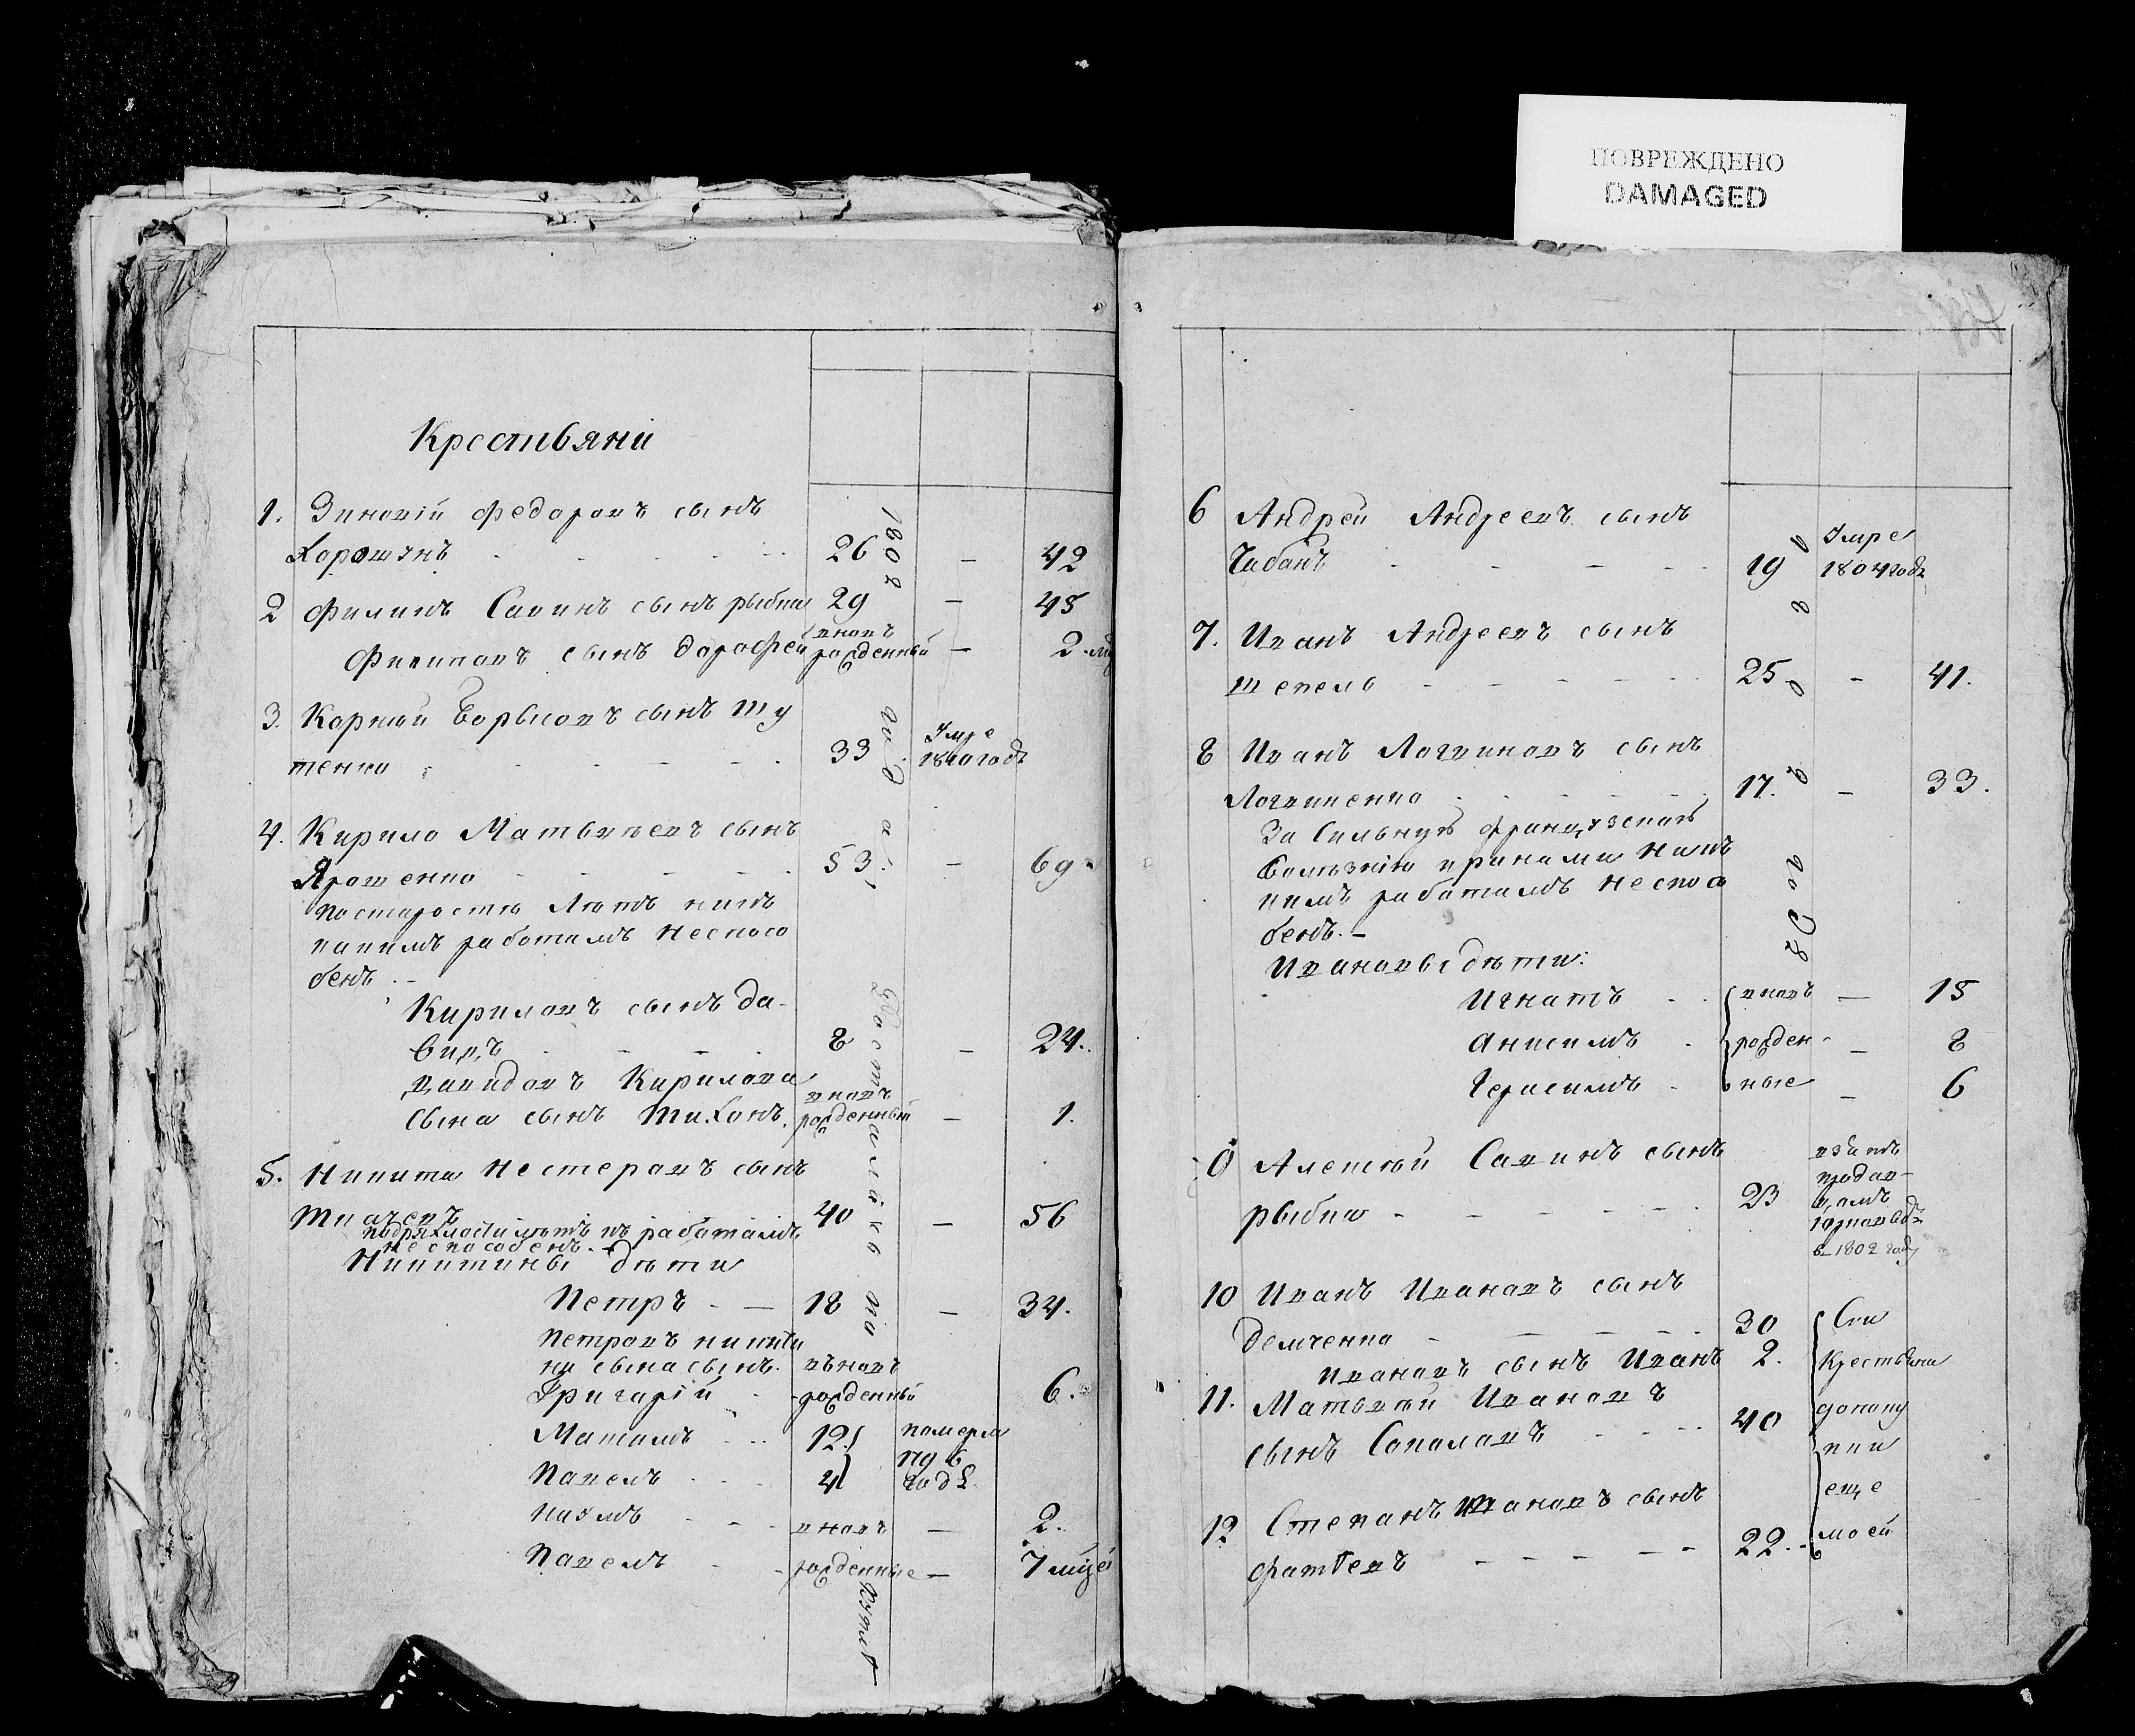 ПОВРЕЖДЕНО
DAMAGED
Крестьяни
1. Зиновій Федоровъ сынъ
Хорошунъ 26 — 42
2 Филипъ Савинъ сынъ рыбка 29 — 45
Филиповъ сынъ дорофей вновь рожденный — 2
3. Корнѣй борысовъ сынъ ту
тенко 33 Умре 1810 годѣ
4. Кирило Матвѣевъ сынъ
Ярошенко 53 — 69
постаростѣ Лѣтъ никъ
какимъ работамъ неспосо
бенъ. —
Кириловъ сынъ да-
видъ 8 — 24.
давидовъ Кирилова
сына сынъ Тихонъ. вновь рожденный — 1.
5. Никита Нестеровъ сынъ
Ткачевъ 40 — 56
подряхлости лѣтъ къ работамъ
неспособенъ. —
Никитины дѣти
Петръ — 18 — 34.
Петровъ никити
на сына сынъ. вновь
Григорій рожденный 6.
Потапъ 12
Павелъ 4 померли годѣ
Наумъ вновь — 2.
Павелъ рожденные — 7 мцей
1802 года
6 Андрей Андреевъ сынъ
Чабанъ 19 Умре 1804 годѣ
7. Иванъ Андреевъ сынъ
шепель 25 — 41.
8 Иванъ Логвиновъ сынъ
Логвиненко 17. — 33.
За Сильную французскою
болѣзнію
работамъ неспосо
бенъ. —
Ивановы дѣти:
Игнатъ вновь — 15
Анисимъ рожден- — 8
Герасимъ ные — 6
9 Алексѣй Савинъ сынъ
рыбка 23
в 1802 году
10 Иванъ Ивановъ сынъ
демченко 30 Сіи
Ивановъ сынъ Иванъ 2. крестьяни
11. Матвѣй Ивановъ
сынъ Соколовъ 40
12 Степанъ Ивановъ сынъ еще
22. моей